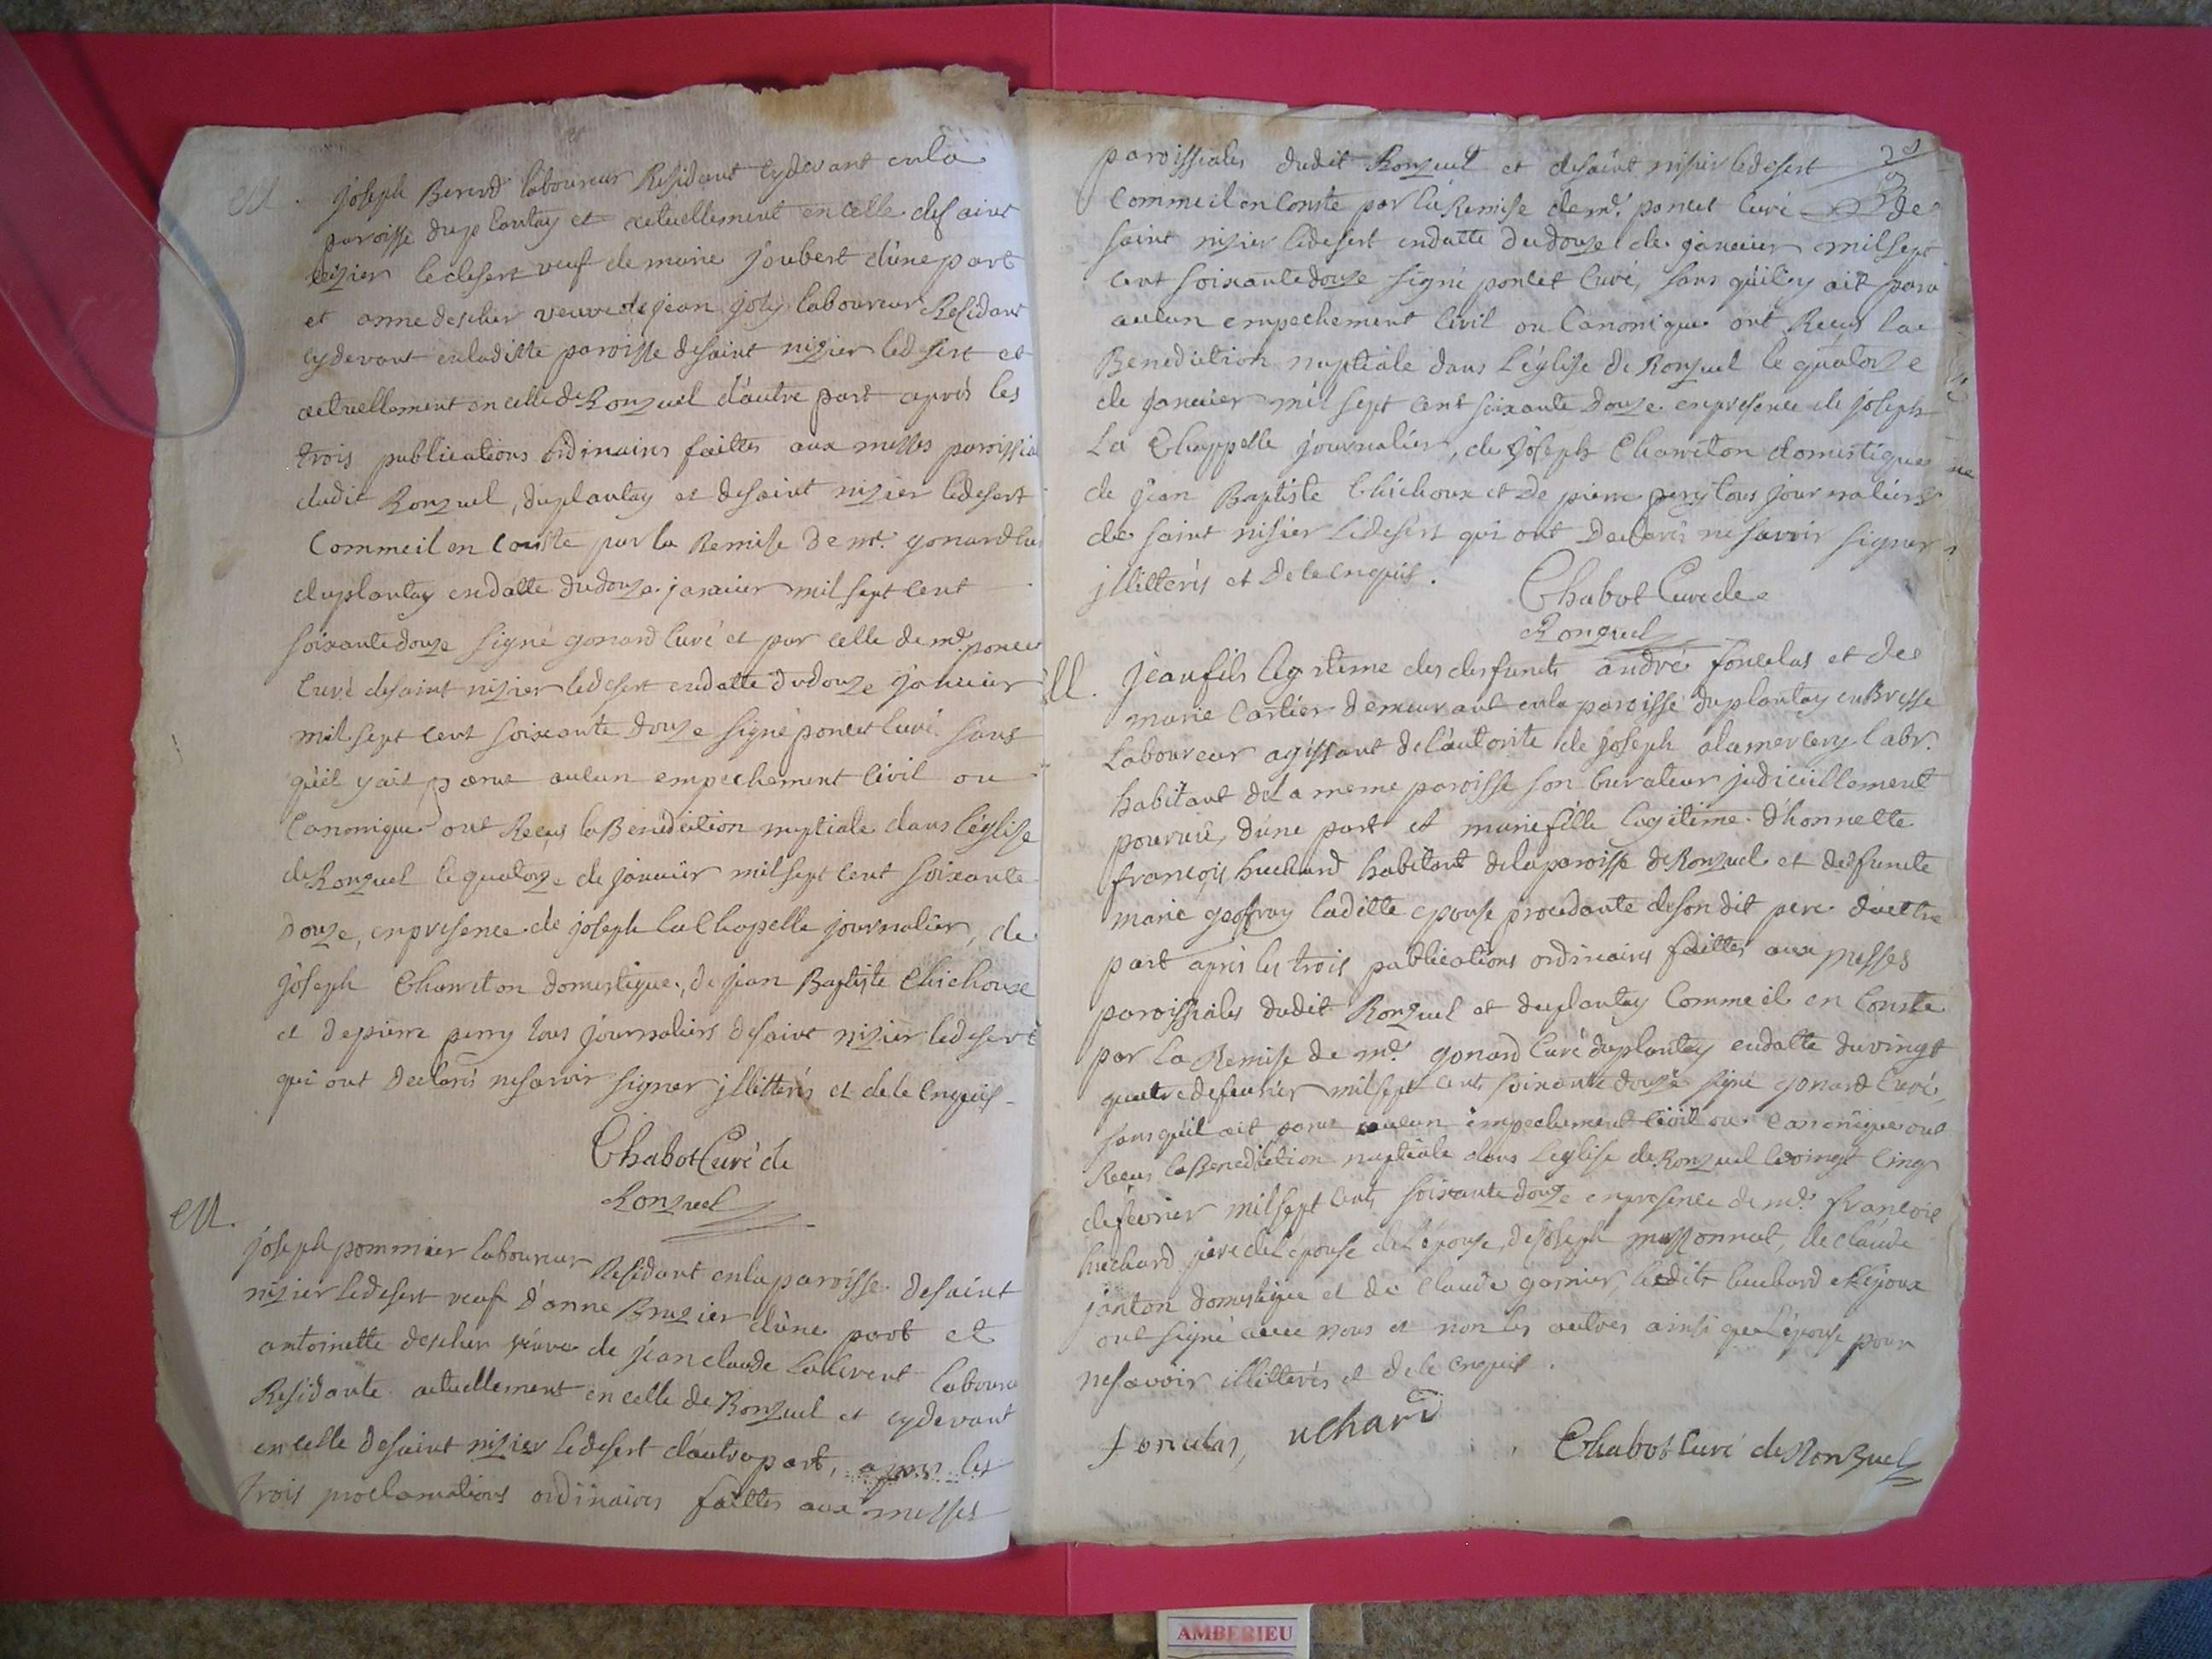 M. joseph Bererd laboureur Residant cydevant enla
paroisse duplantay et actuellement encelle desaint
nizier ledesert veuf de marie joubert d'une part
et anne descher veuve de jean joly laboureur Residant
cydevant enladitte paroisse desaint nizier ledesert et
actuellement encelle de Ronzuel d'autre part aprés les
trois publications ordinaires faittes aux messes paroissia
dudit Ronzuel, duplantay et desaint nizier ledesert
Comme il en Conste par la Remise de mr. gonard Cu
duplantay endatte du douze janvier mil sept cent
soixante douze signé gonard Curé et par celle de mr. poncet
Curé desaint nizier ledesert endatte du douze janvier
mil sept cent soixante douze signé poncet Curé sans
qu'il yait parut aucun empechement Civil ou
Canonique ont Reçus la Benediction nuptiale dans l'église
de Ronzuel le quatorze de janvier mil sept cent soixante
douze, enpresence de joseph la Chapelle journalier, de
joseph Chawiton domestique, de jean Baptiste Chichoux
et de pierre perry tous journaliers desaint nizier ledesert
qui ont declarés nesavoir signer jllitterés et de ce enquis
Chabot Curé de
Ronzuel
M. joseph pommier laboureur Residant enlaparoisse desaint
nizier ledesert veuf d'anne Bruzier d'une part et
antoinette descher veuve de jean claude labeur
Residante actuellement en celle de Ronzuel et cydevant
en celle desaint nizier ledesert d'autre part, apres les
trois proclamations ordinaires faittes aux messes
paroissiales dudit Ronzuel et desaint nisier ledesert
Comme il en Conste par la Remise de mr. poncet Curé de
saint nizier ledesert endatte du douze de janvier mil sept
cent soixante douze signé poncet Curé, sans qu'il y ait paru
aucun empechement Civil ou Canonique ont Reçus la
Benediction nuptiale dans l'église de Ronzuel le quatorze
de janvier mil sept cent soixante douze enpresence de joseph
La Chappelle journalier, de joseph Chawiton domestique
de jean Baptiste Chichoux et de pierre pery tous journaliers
de saint nisier ledesert qui ont declarés ne savoir signer
jllitterés et de ce enquis.
Chabot Curé de
Ronzuel
M. jean fils legitime des desfunts andré foncelas et de
marie Cartier demeurant enla paroisse duplantay enBresse
Laboureur agissant de l'autorité de joseph alamercery labr.
habitant de la meme paroisse son Curateur judiciellement
pourvuë, d'une part et marie fille legitime d'honnette
françois huchard habitant delaparoisse de Ronzuel et desfuncte
marie geoffray laditte epouse procedante desondit pere d'auttre
part aprés les trois publications ordinaires faittes aux messes
paroissiales dudit Ronzuel et duplantay Comme il en Conste
par la Remise de mr. gonard Curé duplantay endatte du vingt
quatre de fevrier mil sept cent soixante douze signé gonard Curé,
sans qu'il ait parut aucun empechement Civil ou Canonique ont
Recus la Benediction nuptiale dans l'eglise de Ronzuel le vingt cinq
de fevrier mil sept cent soixante douze enpresence de mr. françois
huchard pere de l'epouse, de joseph massonnat, de claude
janton domestique et de Claude garnier, lesdits huchard et l'epoux
ont signé avec nous et non les autres ainsi que l'epouse pour
nesavoir illitterés et de ce enquis.
foncelas, uchard
Chabot Curé de Ronzuel
AMBERIEU